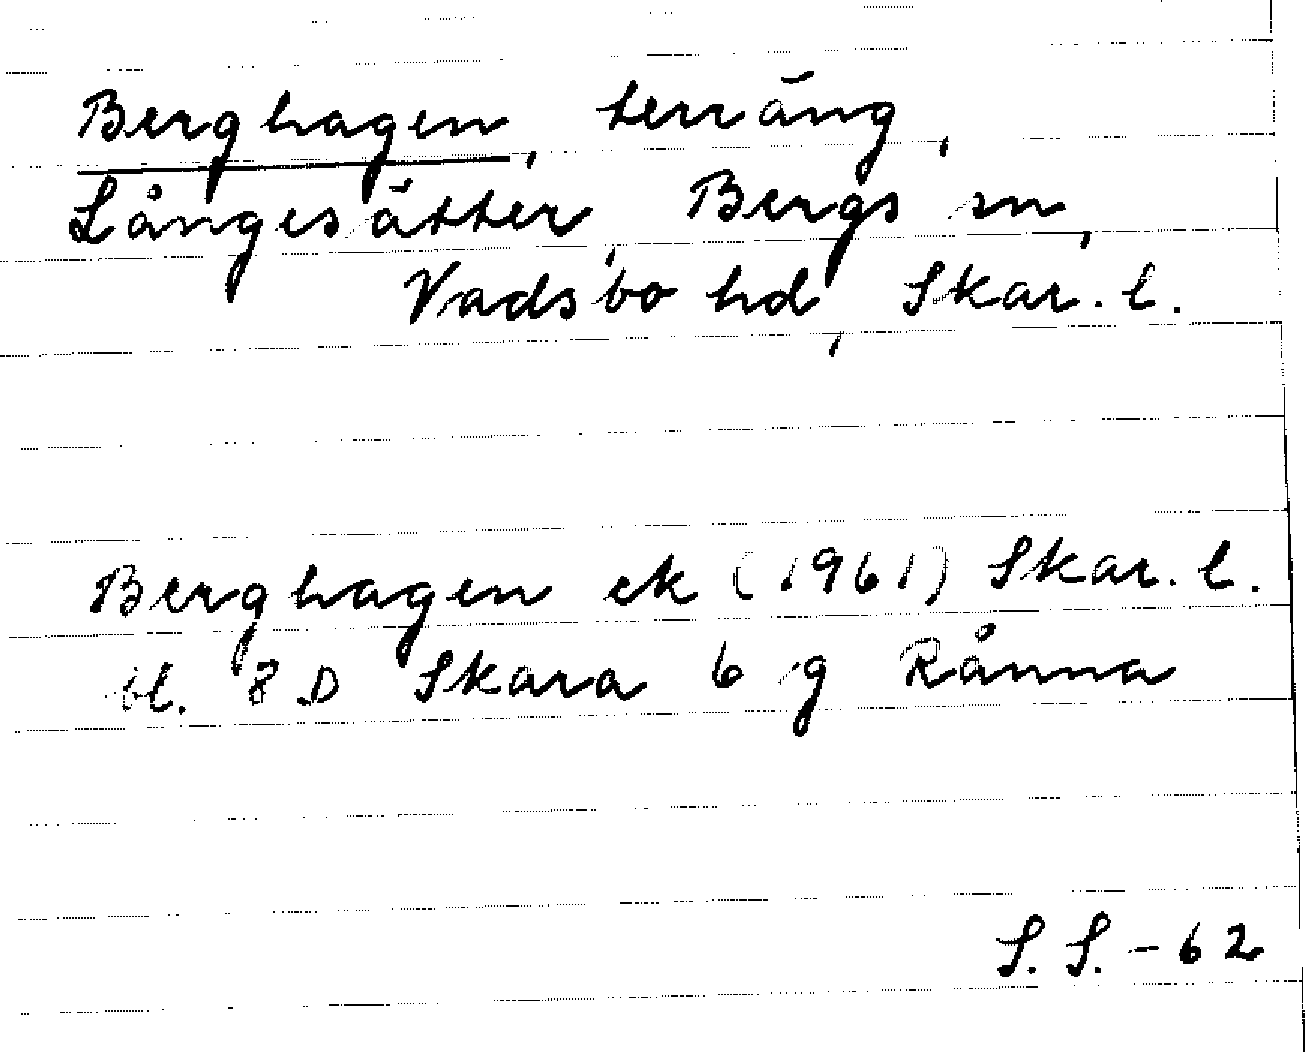 Berghagen, terräng,
Långesätter, Bergs sn,
Vadsbo hd, Skar. l.
Berghagen ek (1961) Skar. l.
bl. 8 D Skara 6 g Rånna
S. S. - 62